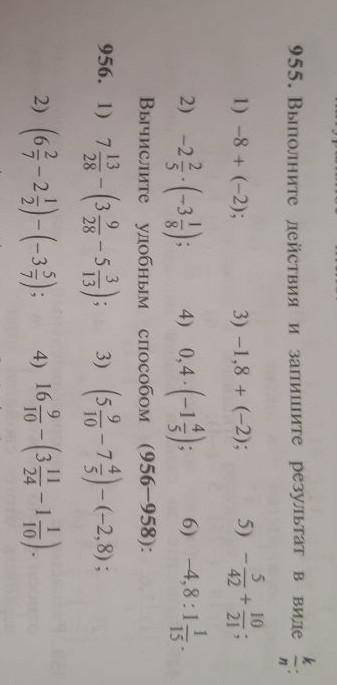 955. Выполните действия и запишите результат в виде k/n:
1) −8 + (−2); 3) −1,8 + (−2); 5) −5/42 + 10/21;
2) −2 2/5 · (−3 1/8); 4) 0,4 · (−1 4/5); 6) −4,8 : 1 1/15.
Вычислите удобным способом (956—958):
956. 1) 7 13/28 − (3 9/28 − 5 3/13); 3) (5 9/10 − 7 4/5) − (−2,8);
2) (6 2/7 − 2 1/2) − (−3 5/7); 4) 16 9/10 − (3 11/24 − 1 1/10).